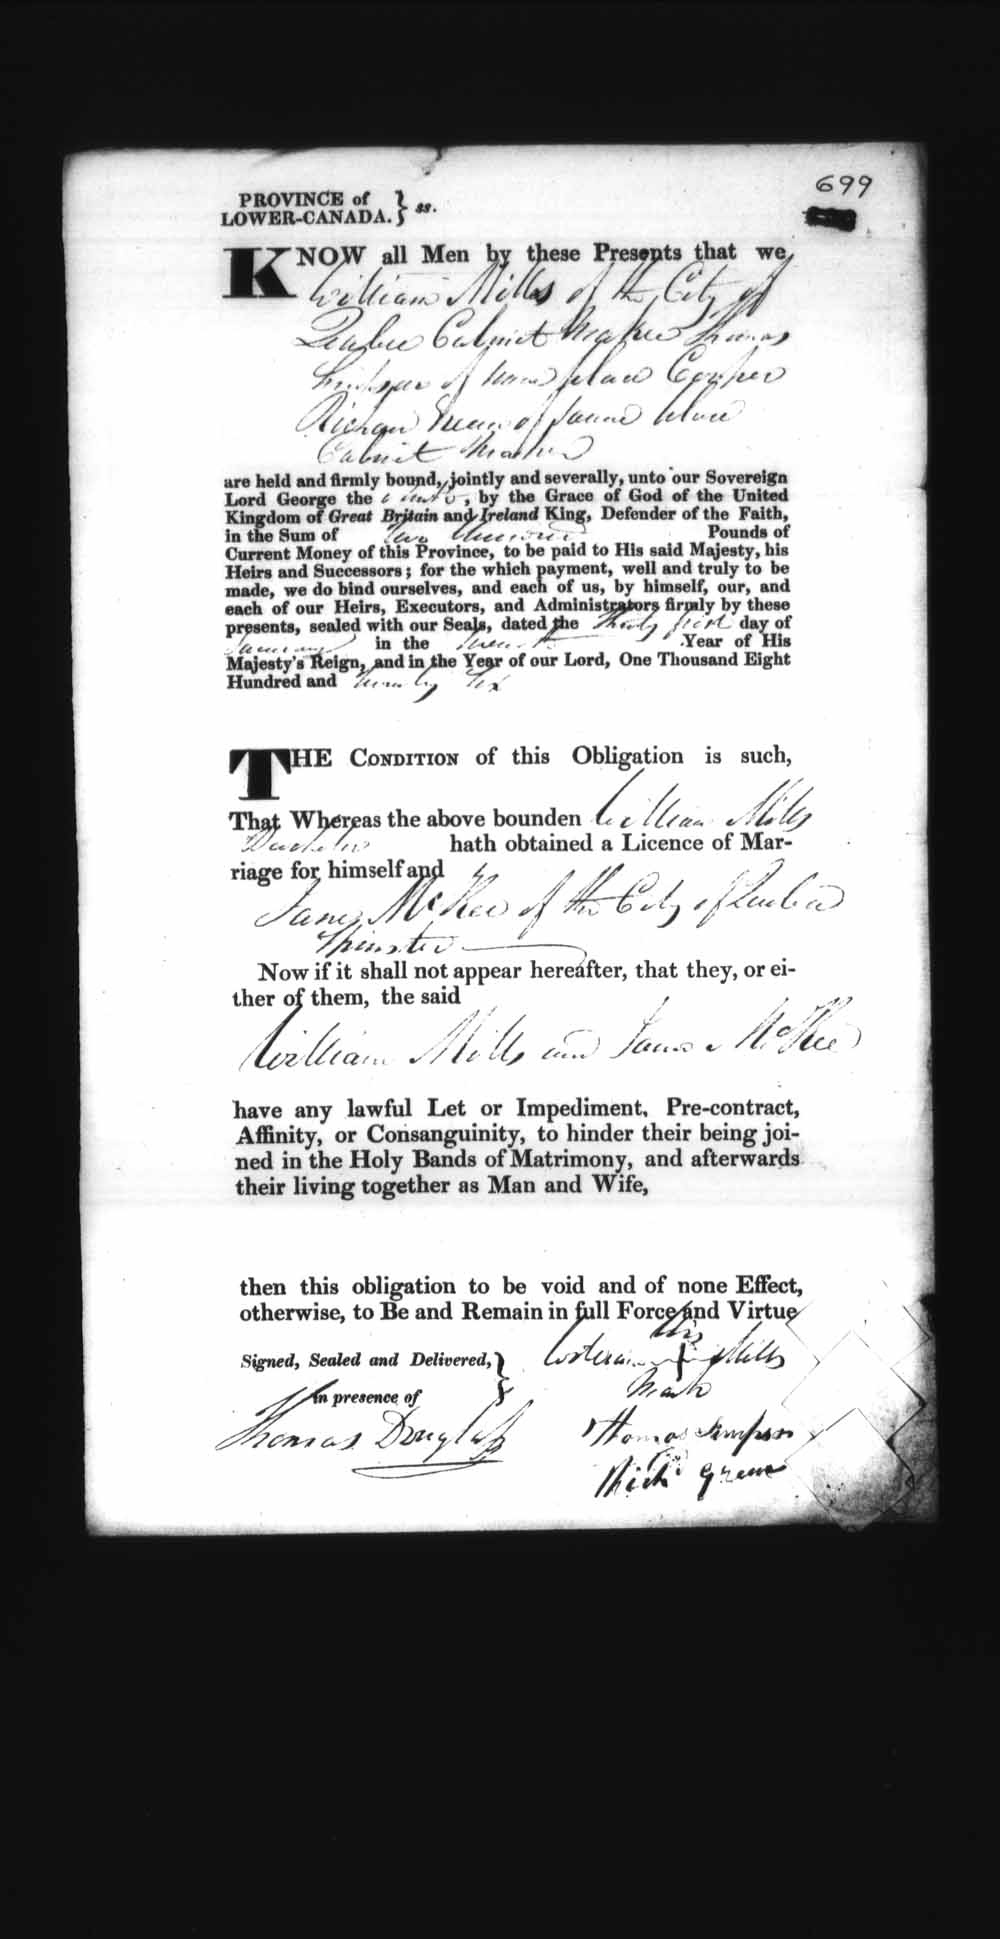 699
PROVINCE of
LOWER-CANADA. } ss.
KNOW all Men by these Presents that we
William Mills of the City of
Quebec Cabinet Maker Thomas
Simpson of same place Cooper
Richard Green of same place
Cabinet Maker
are held and firmly bound, jointly and severally, unto our Sovereign
Lord George the , by the Grace of God of the United
Kingdom of Great Britain and Ireland King, Defender of the Faith,
in the Sum of Two Hundred Pounds of
Current Money of this Province, to be paid to His said Majesty, his
Heirs and Successors; for the which payment, well and truly to be
made, we do bind ourselves, and each of us, by himself, our, and
each of our Heirs, Executors, and Administrators firmly by these
presents, sealed with our Seals, dated the Thirty first day of
January in the Year of His
Majesty's Reign, and in the Year of our Lord, One Thousand Eight
Hundred and Twenty Six
THE CONDITION of this Obligation is such,
That Whereas the above bounden William Mills
Bachelor hath obtained a Licence of Mar-
riage for himself and
Jane McKee of the City of Quebec
Spinster
Now if it shall not appear hereafter, that they, or ei-
ther of them, the said
William Mills and Jane McKee
have any lawful Let or Impediment, Pre-contract,
Affinity, or Consanguinity, to hinder their being joi-
ned in the Holy Bands of Matrimony, and afterwards
their living together as Man and Wife,
then this obligation to be void and of none Effect,
otherwise, to Be and Remain in full Force and Virtue
his
Signed, Sealed and Delivered, } William + Mills
in presence of mark
Thomas Douglass Thomas Simpson
Richd Green